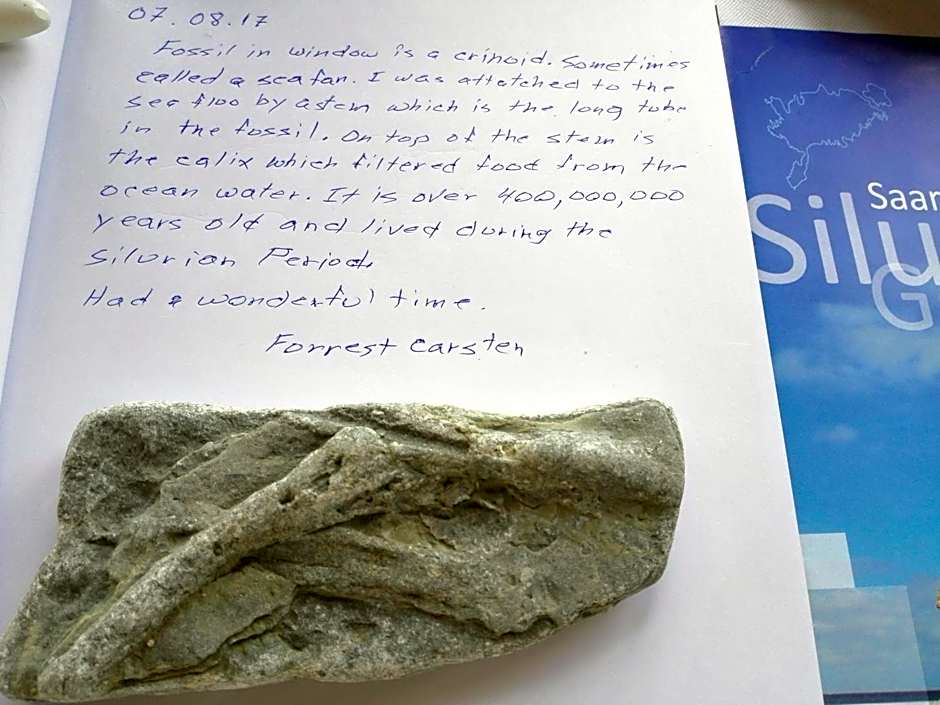 07.08.17
Fossil in window is a crinoid. Sometimes
called a sea fan. I was attatched to the
see floo by a stem which is the long tube
in the fossil. On top of the stem is
the calix which filtered food from the
ocean water. It is over 400,000,000
years old and lived during the
Silurian Period.
Had a wonderful time.
Forrest Carsten
Saar
Silu
G